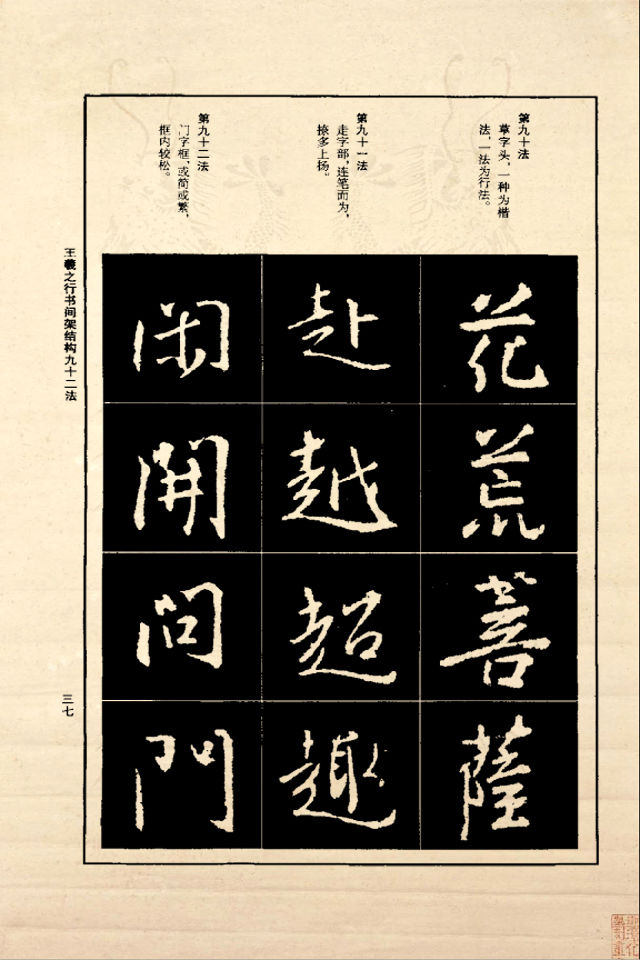 第九十法
草字头，一种为楷
法，一法为行法。
第九十一法
走字部，连笔而为，
捺多上扬。
第九十二法
门字框，或简或繁，
框内较松。
花荒菩萨
赴越超趣
闲開问門
王羲之行书间架结构九十二法
三七